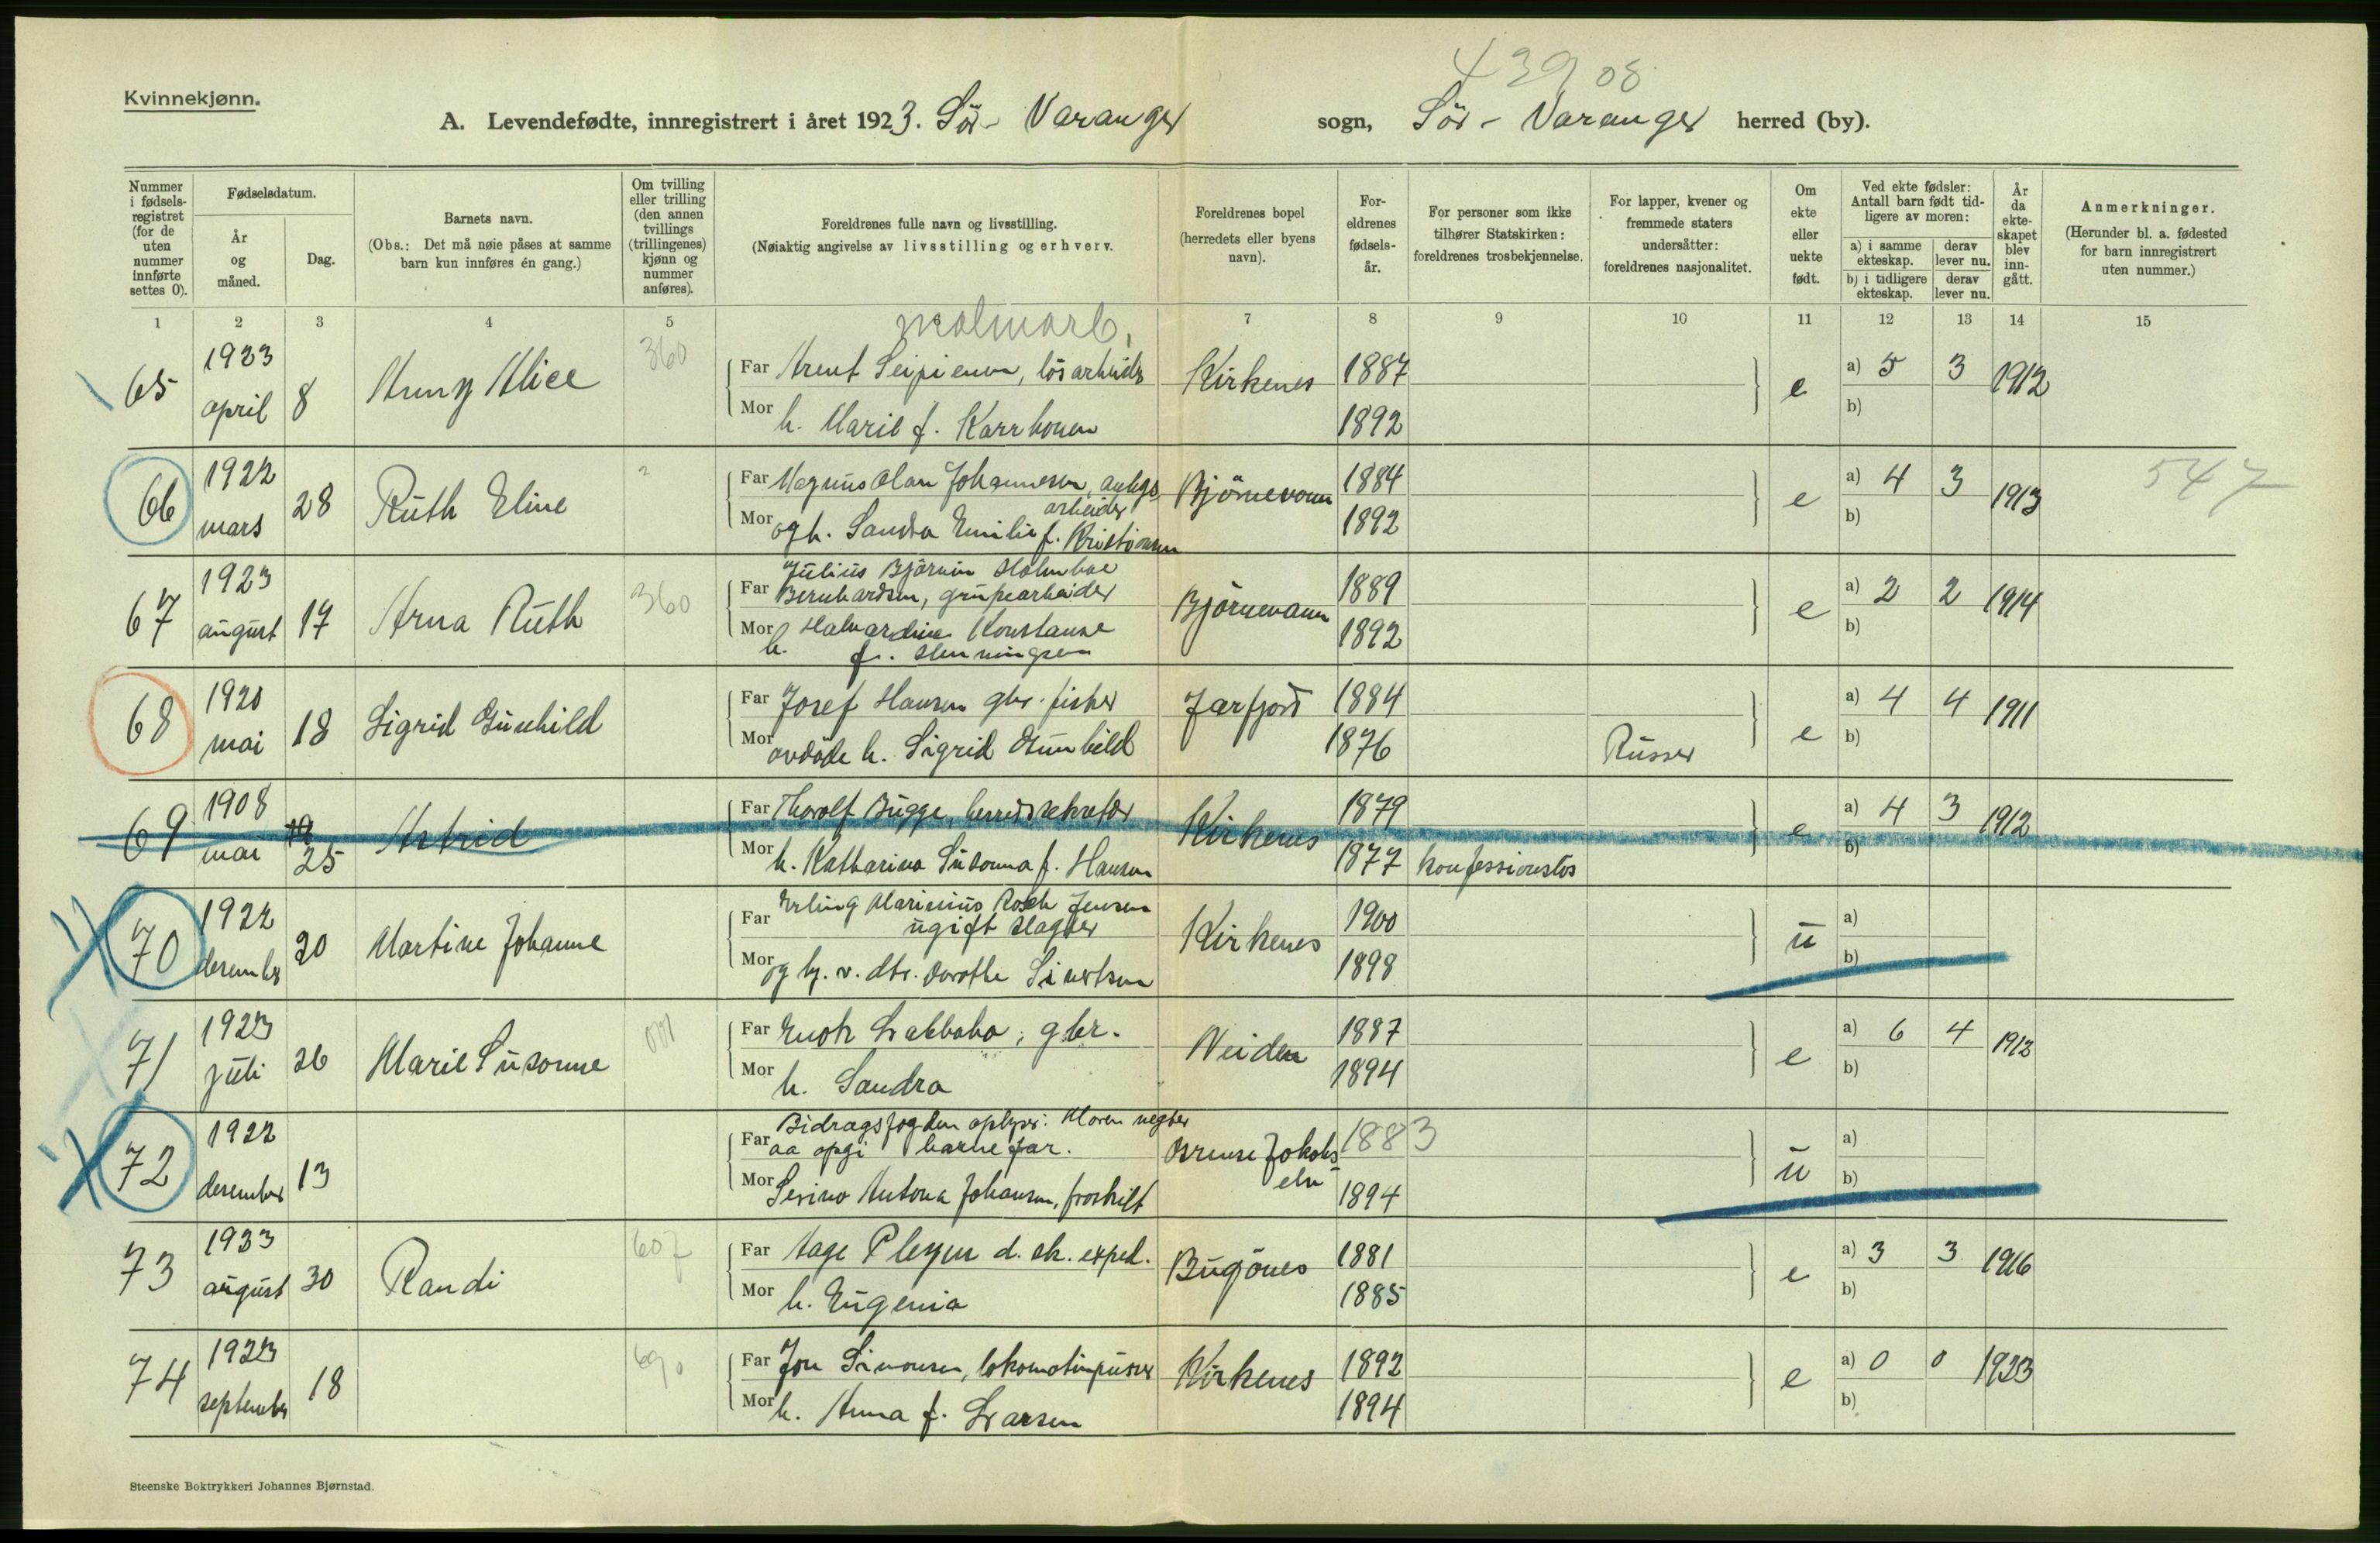 43908
Kvinnekjønn.
A. Levendefødte, innregistrert i året 1923. Sör-Varanger sogn, Sör-Varanger herred (by).
Nummer i fødsels-registret (for de uten nummer innførte settes 0).
Fødselsdatum.
År og måned.
Dag.
Barnets navn.
(Obs.: Det må nøie påses at samme barn kun innføres én gang.)
Om tvilling eller trilling (den annen tvillings (trillingenes) kjønn og nummer anføres).
Foreldrenes fulle navn og livsstilling.
(Nøiaktig angivelse av livsstilling og erhverv.
Foreldrenes bopel (herredets eller byens navn).
For-eldrenes fødsels-år.
For personer som ikke tilhører Statskirken: foreldrenes trosbekjennelse.
For lapper, kvener og fremmede staters undersåtter: foreldrenes nasjonalitet.
Om ekte eller uekte født.
Ved ekte fødsler: Antall barn født tid-ligere av moren:
a) i samme ekteskap.
derav lever nu.
b) i tidligere ekteskap.
derav lever nu.
År da ekte-skapet blev inn-gått.
Anmerkninger.
(Herunder bl. a. fødested for barn innregistrert uten nummer.)
1 2 3 4 5 6 7 8 9 10 11 12 13 14 15
malmarb.
65 1923 april 8 Anny Alice 360
Far Arent , lösarbeider Kirkenes 1887 e a) 5 3 1912
Mor h. Marie f. Karrhonen 1892 b)
66 1922 mars 28 Ruth Eline
Far Magnus Olav Johannesen, anlegs arbeider Björnevann 1884 e a) 4 3 1913 547
Mor og h. Sandra Emilie f. Kristiansen 1892 b)
67 1923 august 17 Arna Ruth 360
Julius Bjarvin Holmboe
Far Bernhardsen, grupearbeider Björnevann 1889 e a) 2 2 1914
Mor h. Halvardine Konstanse 1892 b)
f. Henningsen
68 1920 mai 18 Sigrid Gunhild
Far Josef Hansen gbr. fisker Jarfjord 1884 e a) 4 4 1911
Mor avdöde h. Sigrid Gunhild 1876 Russer b)
69 1908 mai 19 25 Astrid
Far Thorolf Bugge, herredssekretær Kirkenes 1879 e a) 4 3 1912
Mor h. Katharina Susanna f. Hansen 1877 konfessionslös b)
70 1922 desember 20 Martine Johanne
Erling Marinius Rosch Jensen
Far ugift slagter Kirkenes 1900 u a)
Mor og h. v. dtr. Dorothe Sivertsen 1898 b)
71 1923 juli 26 Marie Susanne
Far Enok Labbaha, gbr. Neiden 1887 e a) 6 4 1912
Mor h. Sandra 1894 b)
72 1922 desember 13
Bidragsfogden oplyser: Moren negter
Far aa opgi barnefar. Grense Jakobs elv 1883 u a)
Mor Serina Antona Johansen, fraskilt 1894 b)
73 1923 august 30 Randi 607
Far Aage Pleyen d. sk. exped. Bugönes 1881 e a) 3 3 1916
Mor h. Eugenia 1885 b)
74 1923 september 18 690
Far Jon Simonsen, lokomotivpusser Kirkenes 1892 e a) 0 0 1923
Mor h. Anna f. Larsen 1894 b)
Steenske Boktrykkeri Johannes Bjørnstad.